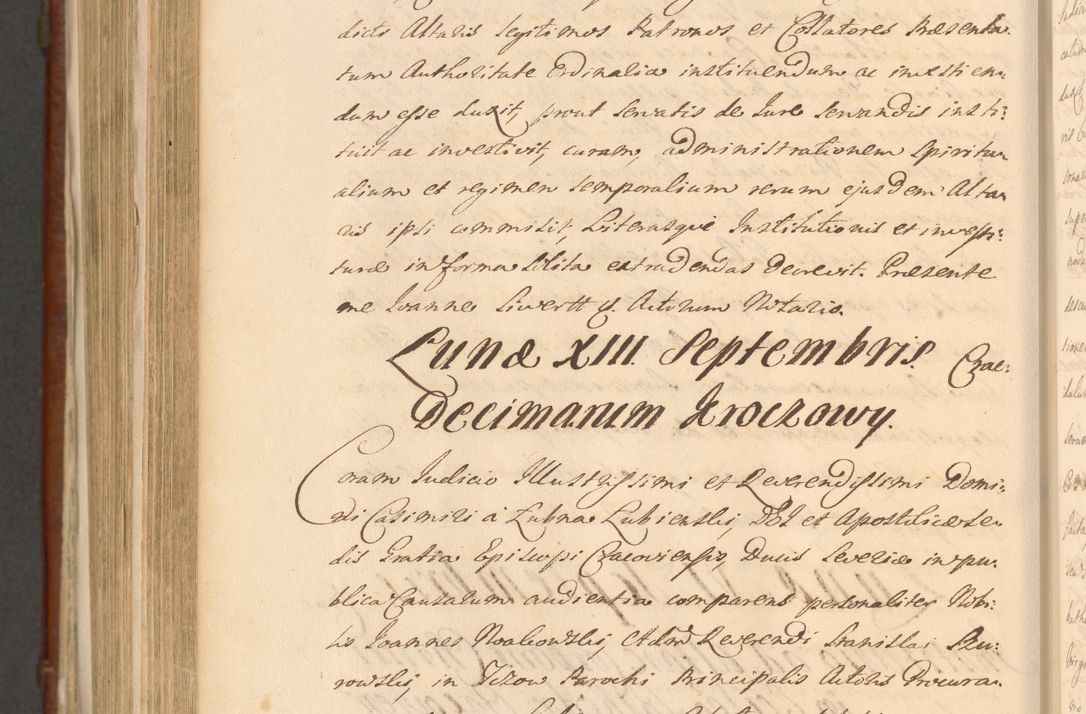 dicti Altaris legitimos Patronos et Collatores Præsenta-
tum Authoritate Ordinalia instituendum ac investien-
dum esse duxit, prout servatis de Jure servandis insti-
tuit ac investivit, curam, administrationem Spiritu-
alium et regimen temporalium rerum ejusdem Alta-
ris ipsi commisit, Literasque Institutionis et investi-
turæ in forma solita extradendas decrevit. Præsente
me Joanne Siwertt Actorum Notario.
Lunæ XIII. Septembris.
Decimarum Kroczowy.
Coram Judicio Illustrissimi et Reverendissimi Domi-
ni Casimiri à Lubna Lubienski, DEI et Apostolicæ Se-
dis Gratia Episcopi Cracoviensis, Ducis Severiæ in pu-
blica Causarum audientia comparens personaliter Nobi-
lis Joannes Reverendi Stanislai
in Parochi Principalis Actoris Procura-